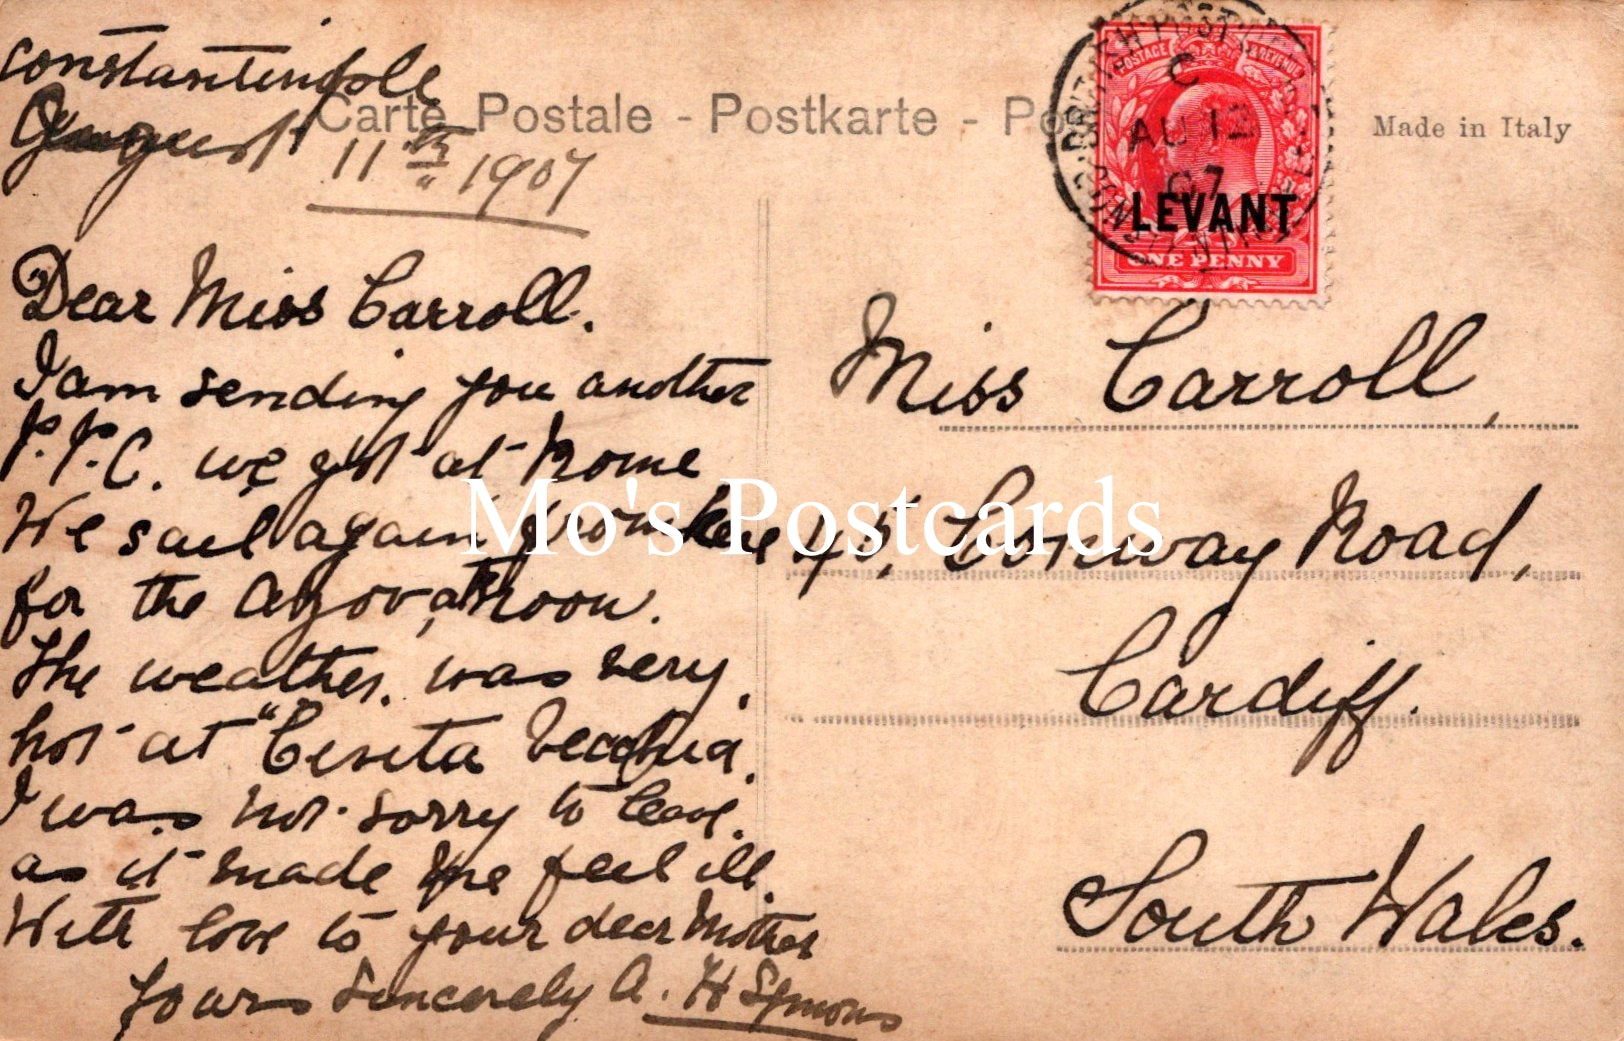 constantinople
August 11th 1907
Carte Postale - Postkarte - Po
Made in Italy
BRITISH POST
C
AU 12
07
POSTAGE & REVENUE
LEVANT
ONE PENNY
Dear Miss Carroll.
I am sending you another
P.P.C. we got at Rome
We sail again from here
for the Azov, at noon.
The weather was very
hot at "Civita Vecchia
I was not sorry to leave.
as it made me feel ill.
With love to your dear Mother
Yours Sincerely A. H Symons
Miss Carroll,
45, Conway Road,
Cardiff.
South Wales.
Mo's Postcards